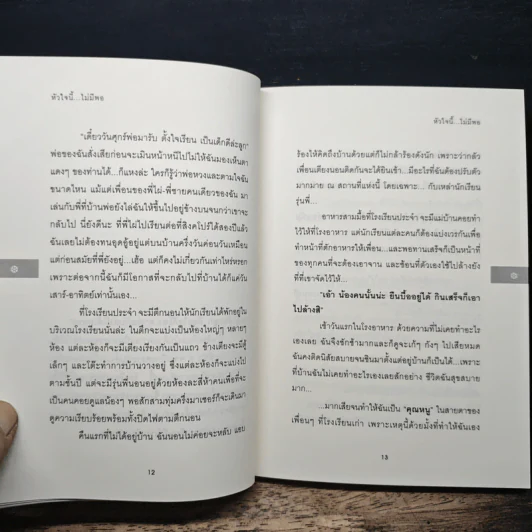 หัวใจนี้...ไม่มีพอ
"เดี๋ยววันศุกร์พ่อมารับ ตั้งใจเรียน เป็นเด็กดีล่ะลูก"
พ่อของฉันสั่งเสียก่อนจะเมินหน้าหนีไปไม่ให้ฉันมองเห็นตา
แดงๆ ของท่านได้...ก็แหงล่ะ ใครก็รู้ว่าพ่อหวงและตามใจฉัน
ขนาดไหน แม้แต่เพื่อนของพี่ไผ่-พี่ชายคนเดียวของฉัน มา
เล่นกับพี่ที่บ้านพ่อยังไล่ฉันให้ขึ้นไปอยู่ข้างบนจนกว่าเขาจะ
กลับไป นี่ยังดีนะ ที่พี่ไผ่ไปเรียนต่อที่สิงคโปร์ได้สองปีแล้ว
ฉันเลยไม่ต้องทนอุดอู้อยู่แต่บนบ้านครึ่งค่อนวันเหมือน
แต่ก่อนสมัยที่พี่ยังอยู่...เฮ้อ แต่ก็คงไม่เกี่ยวกันเท่าไหร่หรอก
เพราะต่อจากนี้ฉันก็มีโอกาสที่จะกลับไปที่บ้านได้ก็แค่วัน
เสาร์-อาทิตย์เท่านั้นเอง...
ที่โรงเรียนประจำ จะมีตึกนอนให้นักเรียนได้พักอยู่ใน
บริเวณโรงเรียนนั่นล่ะ ในตึกจะแบ่งเป็นห้องใหญ่ๆ หลายๆ
ห้อง แต่ละห้องก็จะมีเตียงเรียงกันเป็นแถว ข้างเตียงจะมีตู้
เล็กๆ และโต๊ะทำการบ้านวางอยู่ ซึ่งแต่ละห้องก็จะแบ่งไป
ตามชั้นปี แต่จะมีรุ่นพี่นอนอยู่ด้วยห้องละสี่ห้าคนเพื่อที่จะ
เป็นคนคอยดูแลน้องๆ พอสักสามทุ่มครึ่งมาเซอร์ก็จะเดินมา
ดูความเรียบร้อยพร้อมทั้งปิดไฟตามตึกนอน
คืนแรกที่ไม่ได้อยู่บ้าน ฉันนอนไม่ค่อยจะหลับ แอบ
12
หัวใจนี้...ไม่มีพอ
ร้องไห้คิดถึงบ้านด้วยแต่ก็ไม่กล้าร้องดังนัก เพราะว่ากลัว
เพื่อนเตียงนอนติดกันจะได้ยินเข้า...มีอะไรที่ฉันต้องปรับตัว
มากมาย ณ สถานที่แห่งนี้ โดยเฉพาะ... กับเหล่านักเรียน
รุ่นพี่...
อาหารสามมื้อที่โรงเรียนประจำ จะมีแม่บ้านคอยทำ
ไว้ให้ที่โรงอาหาร แต่นักเรียนแต่ละคนก็ต้องแบ่งเวรกันเพื่อทำ
หน้าที่ตักอาหารให้เพื่อน...และพอทานเสร็จก็เป็นหน้าที่
ของทุกคนที่จะต้องเอาจาน และช้อนที่ตัวเองใช้ไปล้างยัง
ที่ที่เขาจัดไว้ให้...
"เอ้า น้องคนนั้นน่ะ ยืนบื้ออยู่ได้ กินเสร็จก็เอา
ไปล้างสิ"
เช้าวันแรกในโรงอาหาร ด้วยความที่ไม่เคยทำอะไร
เองเลย ฉันจึงชักช้ามากและก็ดูจะเก้ๆ กังๆ ไปเสียหมด
ฉันคงติดนิสัยสบายจนชินมาตั้งแต่อยู่บ้านก็เป็นได้...เพราะ
ที่บ้านฉันไม่เคยทำอะไรเองเลยสักอย่าง ชีวิตฉันสุขสบาย
มาก...
...มากเสียจนทำให้ฉันเป็น "คุณหนู" ในสายตาของ
เพื่อนๆ ที่โรงเรียนเก่า เพราะเหตุนี้ด้วยมั้งที่ทำให้ฉันเอง
13